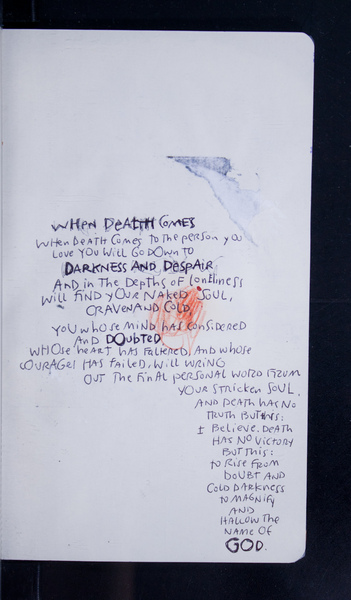 WHEN DEATH COMES
WHEN DEATH COMES TO THE PERSON YOU
LOVE YOU WILL GO DOWN TO
DARKNESS AND DESPAIR
AND IN THE DEPTHS OF LONELINESS
WILL FIND YOUR NAKED SOUL,
CRAVEN AND COLD,
YOU WHOSE MIND HAS CONSIDERED
AND DOUBTED
WHOSE HEART HAS FALTERED, AND WHOSE
COURAGE HAS FAILED, WILL WRING
OUT THE FINAL PERSONAL WORD FROM
YOUR STRICKEN SOUL,
AND DEATH HAS NO
TRUTH BUT THIS:
I BELIEVE. DEATH
HAS NO VICTORY
BUT THIS:
TO RISE FROM
DOUBT AND
COLD DARKNESS
TO MAGNIFY
AND
HALLOW THE
NAME OF
GOD.